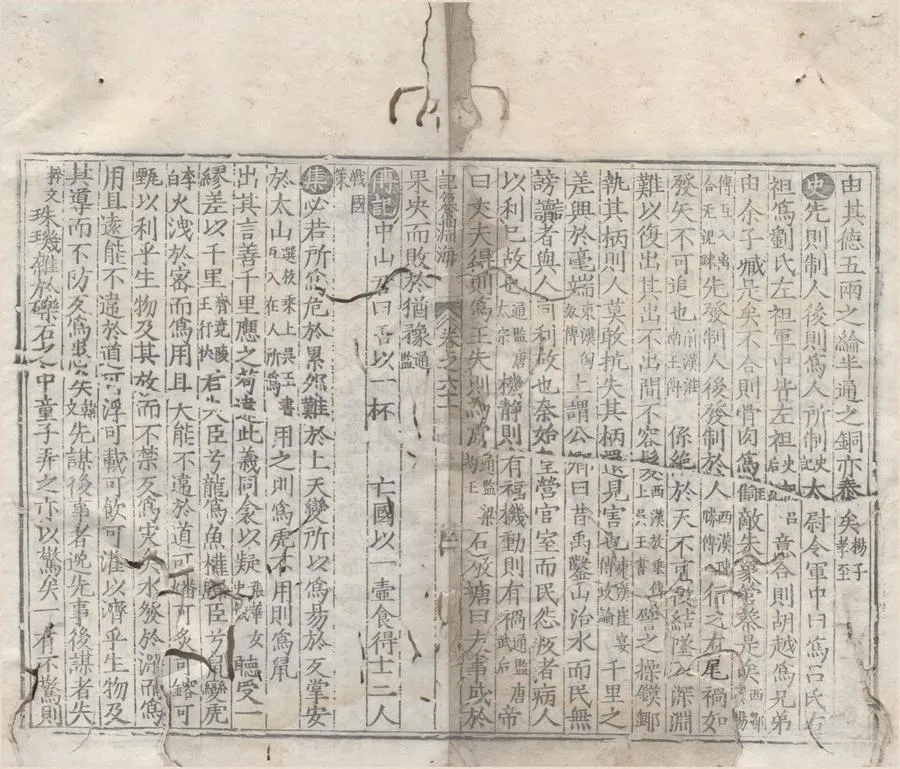 由其德五兩之綸半通之銅亦泰矣楊子孝至
史先則制人後則爲人所制史記太尉令軍中曰爲呂氏右
袒爲劉氏左袒軍中皆左袒史呂后意合則胡越爲兄弟
由余子臧是矣不合則骨肉爲讎敵朱象管蔡是矣西鄒陽
傳互入離合无親踈先發制人後發制於人西漢勝傳行之有尾禍如
發矢不可追也前漢淮南王傳係絶於天不可復結墜入深淵
難以復出其出不出間不容髮西漢枚乘傳上吳王書譬之操鏌鋣
執其柄則人莫敢抗失其柄還見害也東漢崔寔傳政論千里之
差興於毫端東漢傳上謂公卿曰昔禹鑿山治水而民無
謗讟者與人同利故也秦始皇營宮室而民怨叛者病人
以利己故也通鑑唐太宗機静則有福機動則有禍通鑑唐武后帝
曰丈夫得則爲王失則爲通鑑梁王石敬塘曰夫事成於
果决而敗於猶豫通鑑
記纂淵海 卷之六十
傳記中山君曰吾以一杯亡國以一壷食得士二人
戰國策
集必若所爲危於累卵難於上天變所以爲易於反掌安
於太山選枚乘上吳王書互入在人所爲用之則爲虎不用則爲鼠
出其言善千里應之苟違此義同衾以疑張華女史箴聽受一
繆差以千里齊竟陵王行狀君失臣兮龍爲魚權歸臣兮鼠變虎
李白火洩於密而爲用且大能不違於道可燔可炙可鎔可
甄以利乎生物及其放而不禁反爲灾矣水發於深而爲
用且遠能不違於道可浮可載可飲可灌以濟乎生物及
其導而不防反爲患矣韓文先謀後事者逸先事後謀者失
粹文珠璣雜於礫石之中童子弄之亦以驚矣一有不驚則